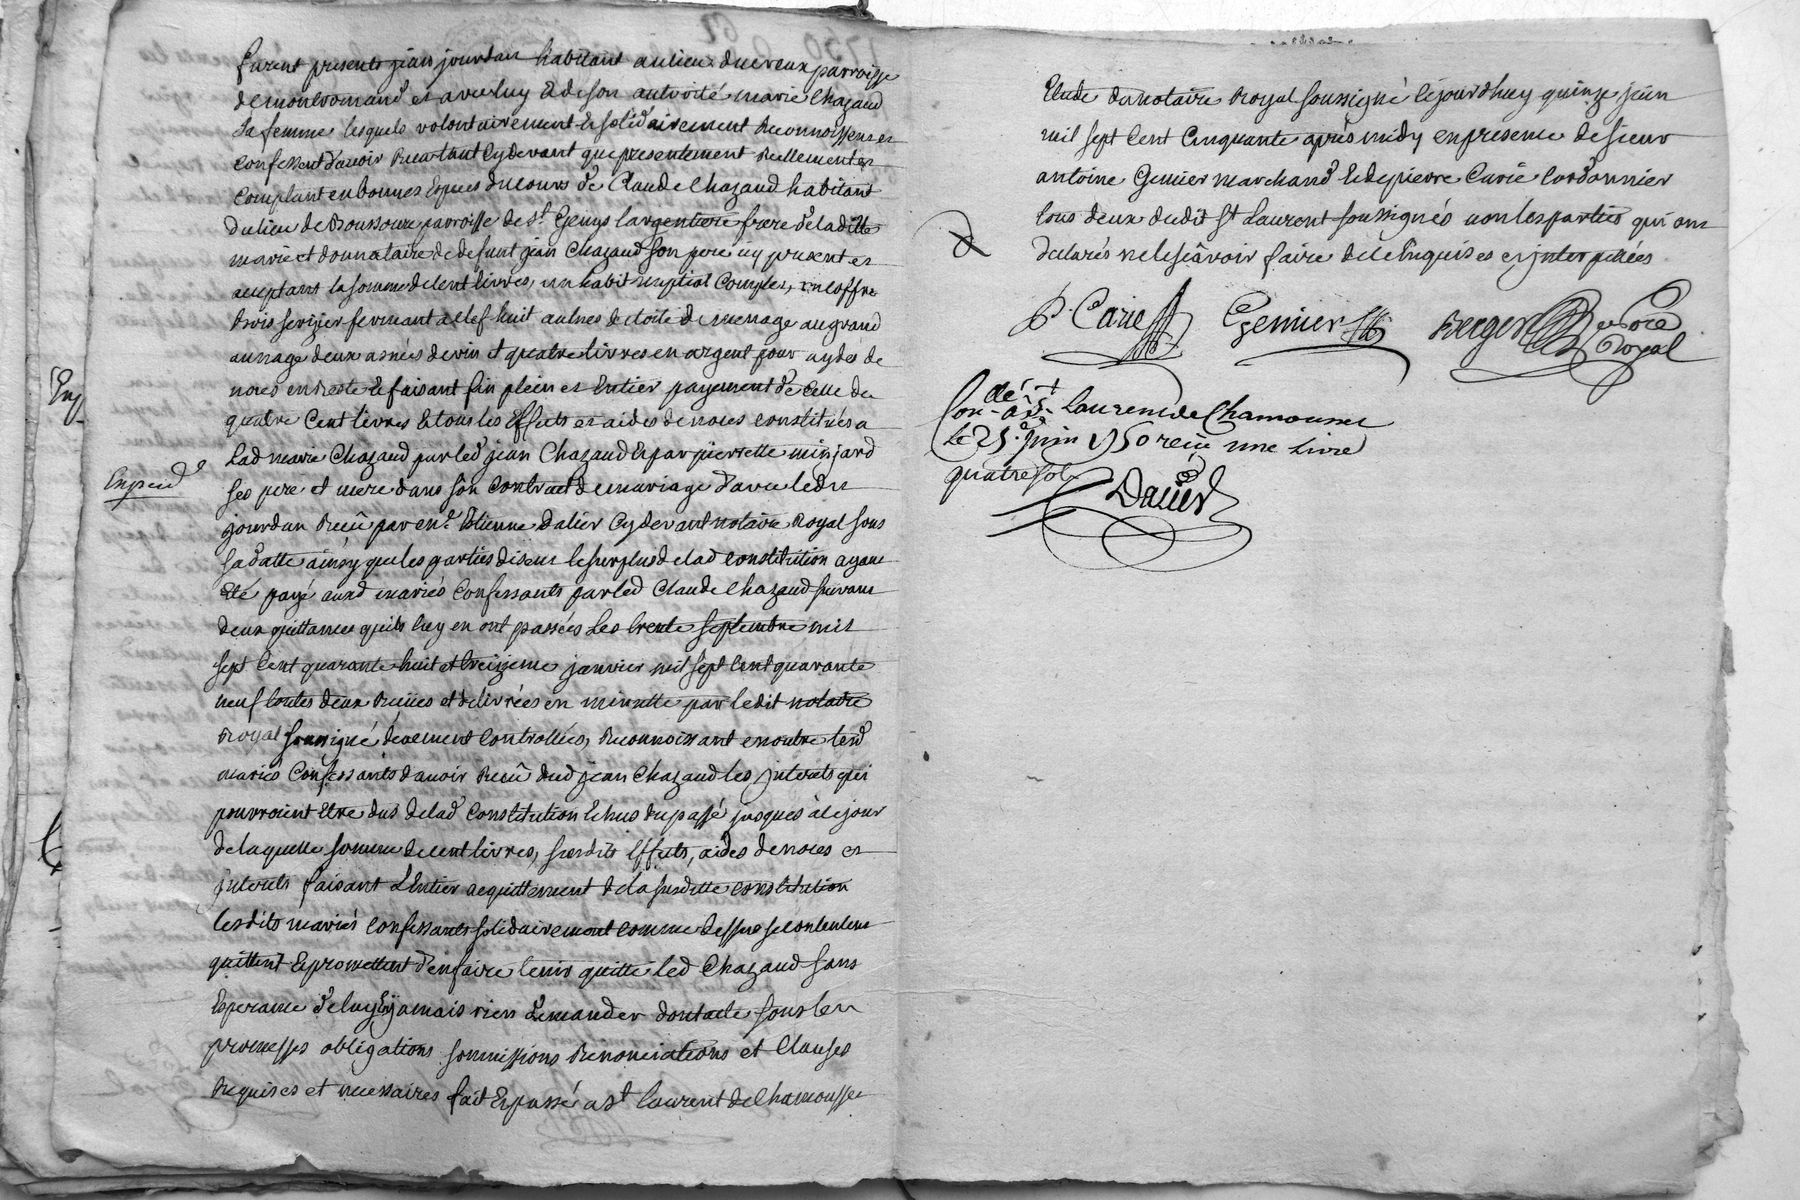 furent presents jean jourdan habitant au lieu du creux parroisse
de montromand et avec luy et de son autorité marie Chazaud
sa femme lesquels volontairement et solidairement reconnoissent et
confessent d'avoir recu tant cydevant que presentement reellement et
comptant en bonnes especes du cours de Claude Chazaud habitant
du lieu de Boussoure parroisse de st Genys largentiere frere de laditte
marie et donnataire de defunt jean Chazaud son pere icy present et
acceptant la somme de cent livres, un habit nuptial complet, un coffre
bois serizier fermant a clef huit aulnes de toile de menage au grand
aunage deux asnées de vin et quatre livres en argent pour aydes de
noces en reste et faisant fin plein et entier payement de celle de
quatre cent livres et tous les effets et aides de noces constitués a
lad marie Chazaud par led jean Chazaud et par pierrette minjard
ses pere et mere dans son contract de mariage d'avec led
jourdan recû par me Etienne Dalier cydevant notaire royal sous
sa datte ainsy que les parties disent le surplus de lad constitution ayant
eté payé auxd mariés confessants par led Claude Chazaud suivant
deux quittances qu'ils luy en ont passées les trente septembre mil
sept cent quarante huit et treizieme janvier mil sept cent quarante
neuf toutes deux recües et delivrées en minutte par ledit notaire
royal soussigné dëuement controllées, reconnoissant en outre lesd
mariés confessants d'avoir recû dud jean Chazaud les interets qui
pourroient etre dus de lad constitution echus du passé jusques à ce jour
de laquelle somme de cent livres, susdits effets, aides de noces et
interets faisant l'entier acquittement de la susditte constitution
lesdits mariés confessants solidairement comme dessus se contentent
quittent et promettent d'en faire tenir quitte led Chazaud sans
esperance de luy en jamais rien demander dont acte sous les
promesses obligations soumissions renonciations et clauses
requises et necessaires fait et passé a st Laurent de Chamousset
Etude du notaire royal soussigné cejourd'huy quinze juin
mil sept cent cinquante après midy en presence de sieur
antoine Genier marchand et de pierre Carie cordonnier
tous deux dudit st Laurent soussignés non les parties qui ont
declarés ne le sçavoir faire de ce enquises et interpellées
P. Carie Genier Berger Nore Royal
Con. a st Laurent de Chamousset
Le 25 juin 1750 reçu une livre
quatre sols
Dalier